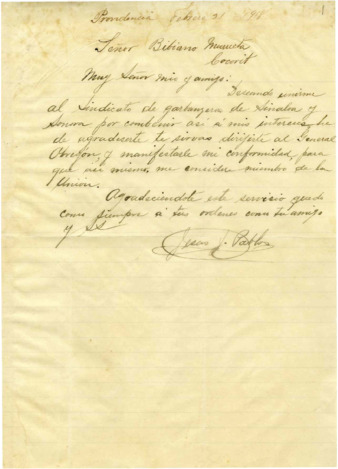 Providencia Febr 21
Señor Bibiano
Cocorit
Muy Señor mio y amigo:
Deseando unirme
al Sindicato de garbanzera de Sinaloa y
Sonora por combenir asi a mis intereses, he
de agradecerte te sirvas dirijirte al General
Obregon y manifestarle mi conformidad, para
que asi mismo, me considere miembro de la
Union.
Agradeciendote este servicio quedo
como siempre a tus ordenes como tu amigo
y SS
Jesus J.